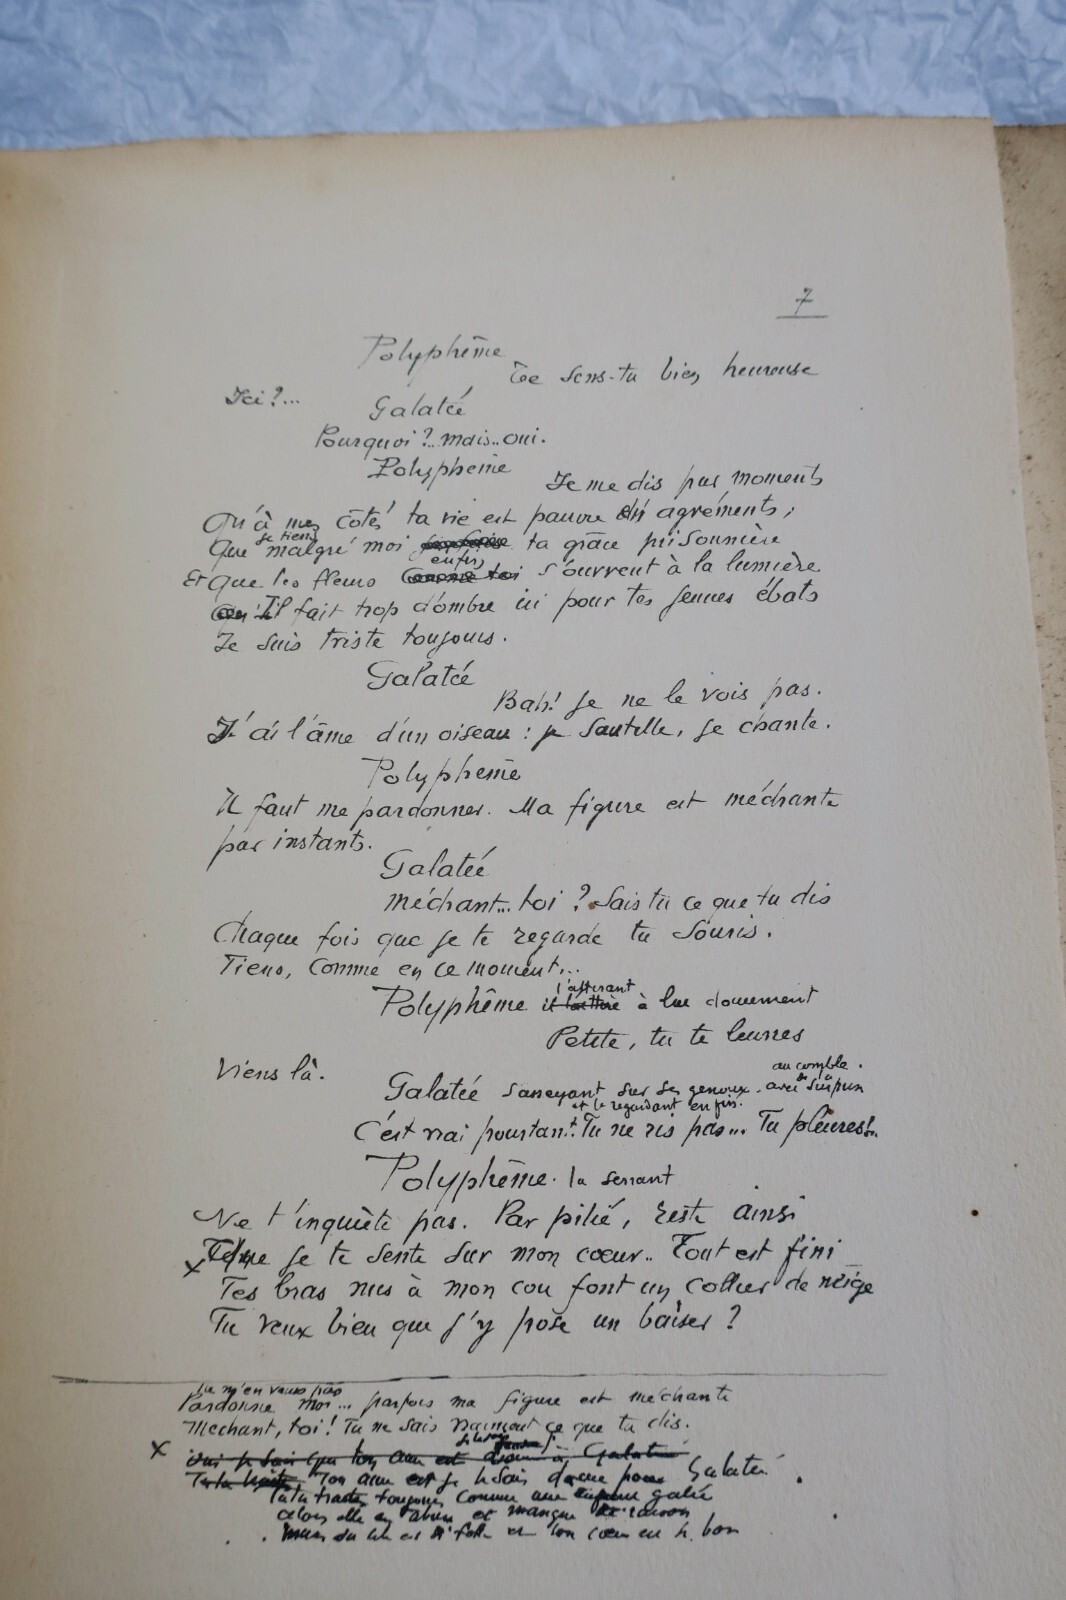 7
Polyphême
Te sens-tu bien heureuse
Ici ?...
Galatée
Pourquoi ?.. mais.. oui.
Polypheme
Je me dis par moments
Qu'à mes côtés ta vie est pauvre en agréments ;
Que malgré moi je tiens ta grâce prisonnière
Et que les fleurs enfin s'ouvrent à la lumière
Il fait trop d'ombre ici pour tes jeunes ébats
Je suis triste toujours.
Galatée
Bah! je ne le vois pas.
J'ai l'âme d'un oiseau : je sautille, je chante.
Polypheme
Il faut me pardonner. Ma figure est méchante
par instants.
Galatée
Méchant... toi ? Sais tu ce que tu dis
Chaque fois que je te regarde tu souris.
Tiens, comme en ce moment...
Polyphême l'attirant à lui doucement
Petite, tu te leurres
Viens là.
Galatée s'asseyant sur ses genoux. au comble
et le regardant enfin.
C'est vrai pourtant. Tu ne ris pas... Tu pleures!..
Polyphême. la serrant
Ne t'inquiète pas. Par pitié, reste ainsi
x Que je te sente sur mon cœur.. Tout est fini
Tes bras nus à mon cou font un collier de neige
Tu veux bien que j'y pose un baiser ?
Pardonne moi... parfois ma figure est méchante
Mechant, toi ! Tu ne sais vraiment ce que tu dis.
x
Ton ame est je le sais douce pour Galatée.
toujours comme une
et manque de raison
folle et ton cœur est si bon